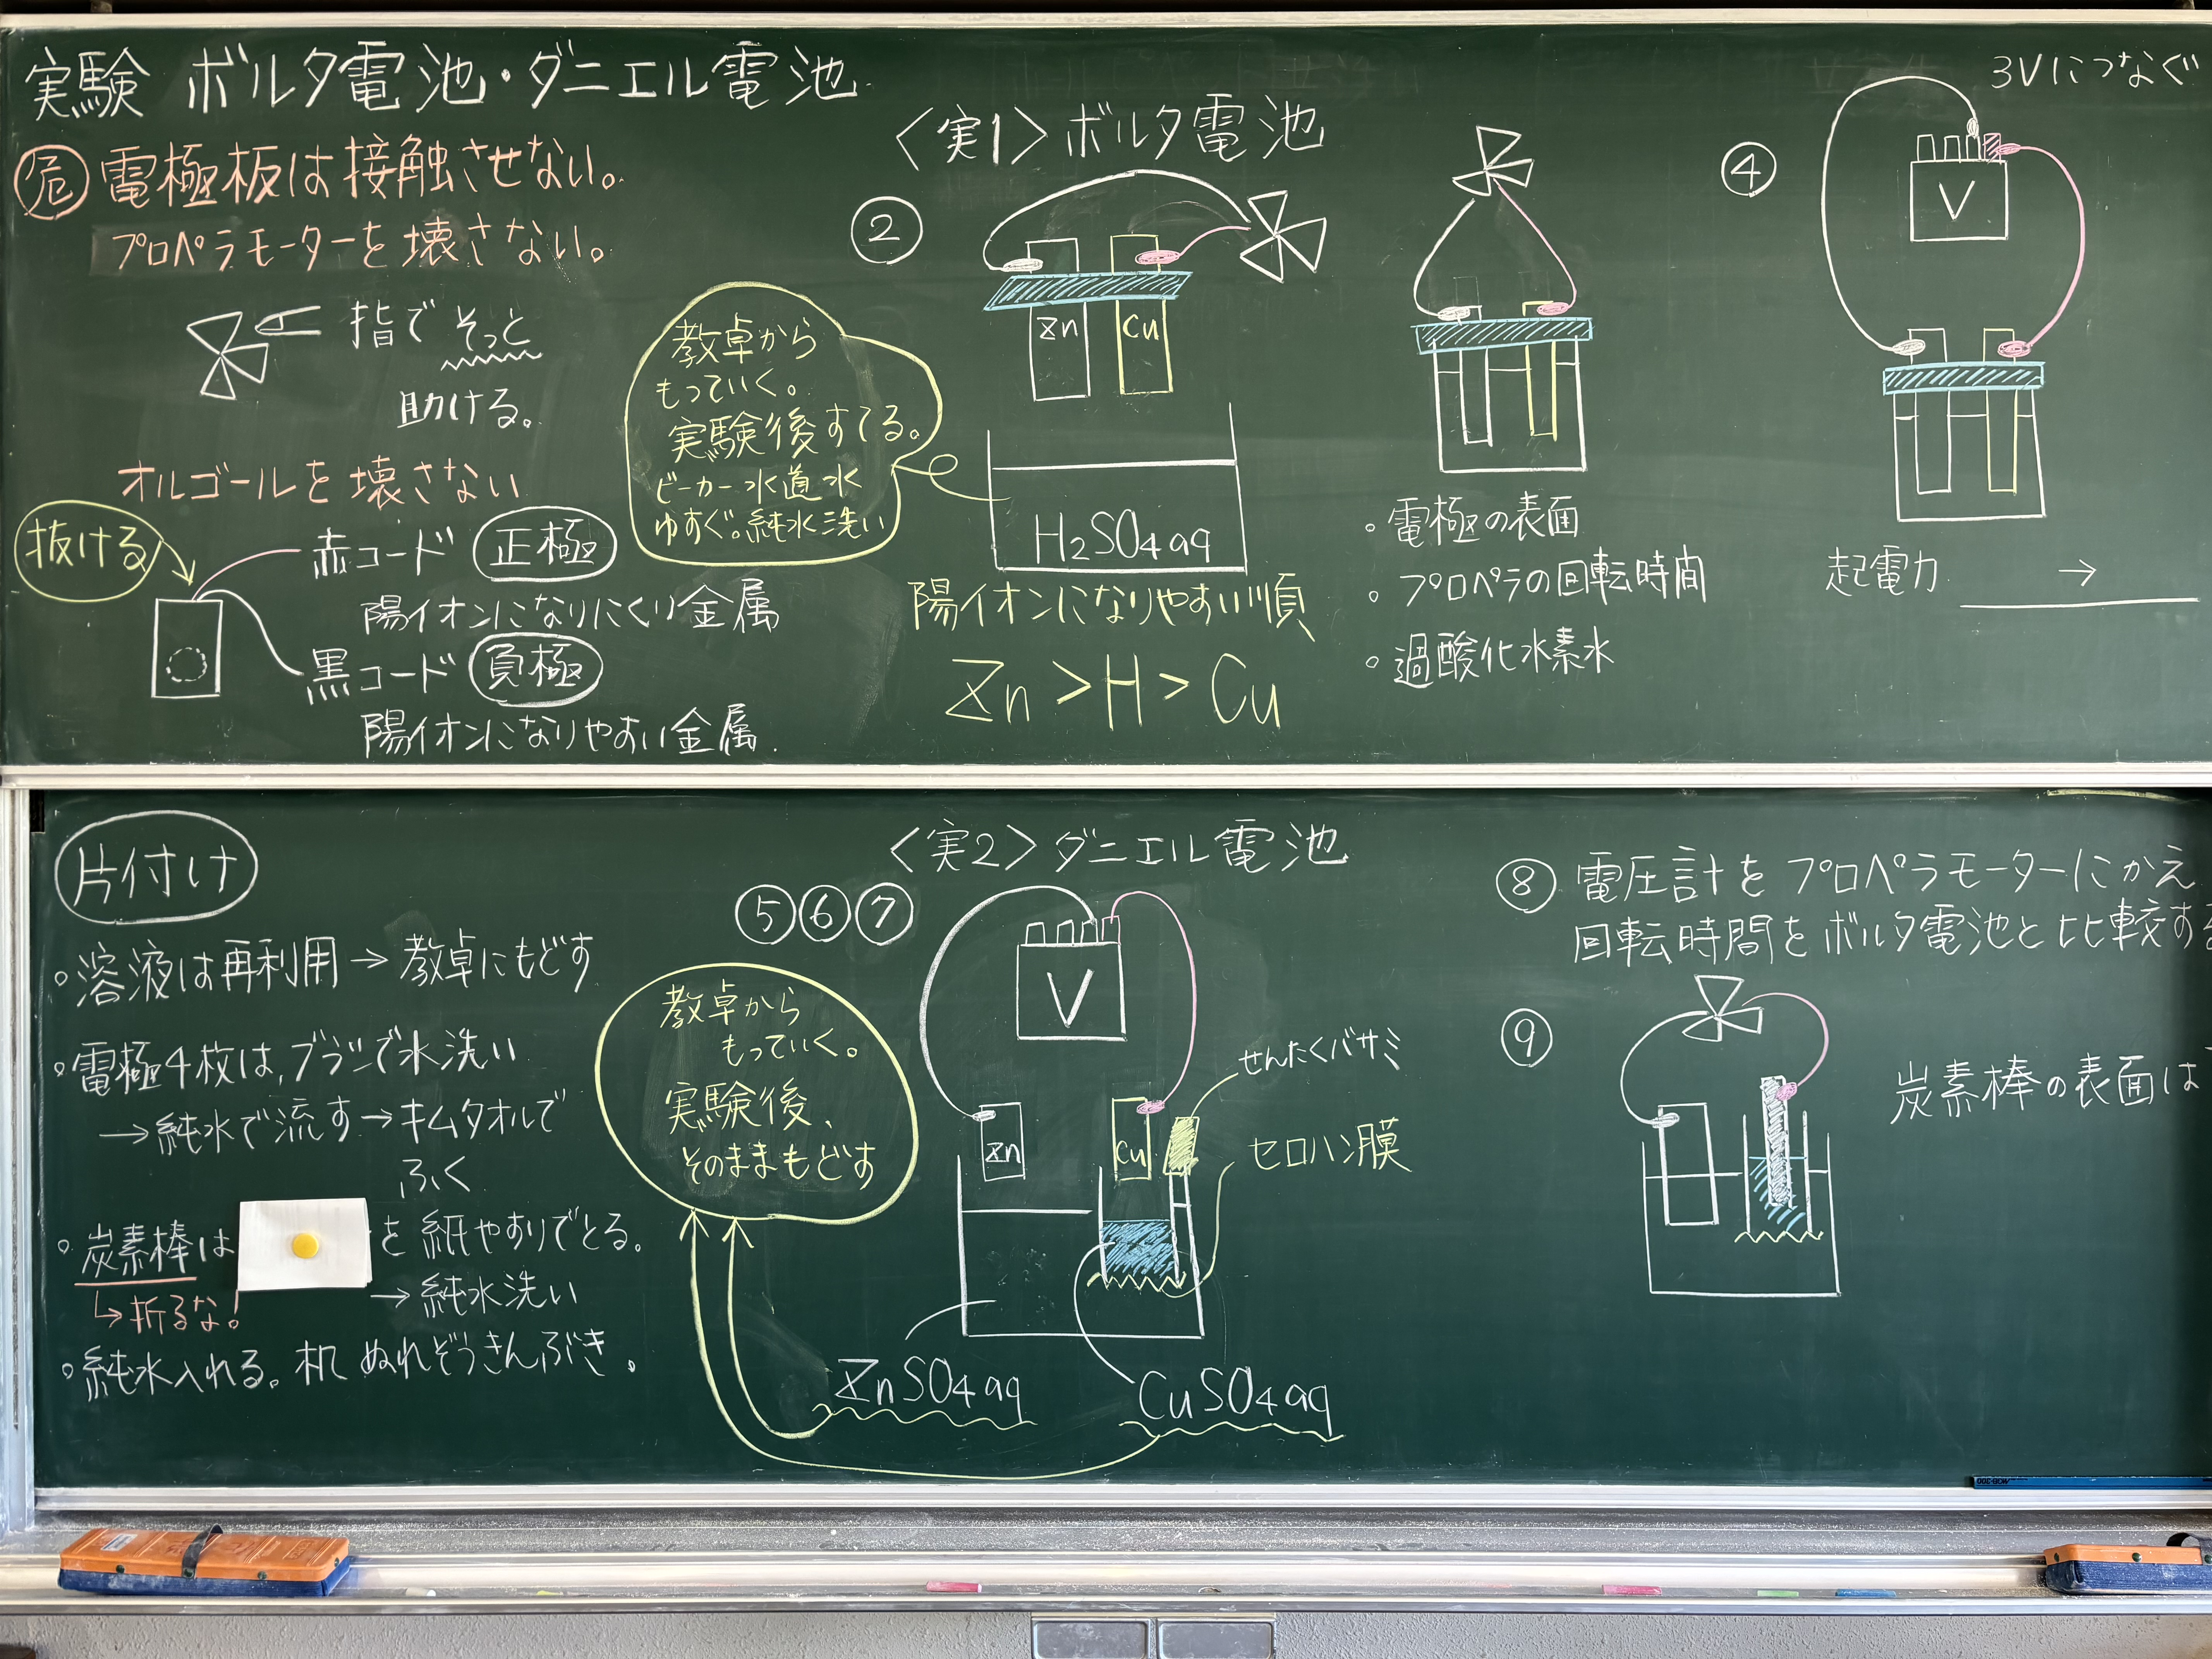 実験 ボルタ電池・ダニエル電池
危 電極板は接触させない。
プロペラモーターを壊さない。
指でそっと
助ける。
オルゴールを壊さない
抜ける
赤コード 正極
陽イオンになりにくい金属
黒コード 負極
陽イオンになりやすい金属
〈実1〉ボルタ電池
②
Zn
Cu
教卓から
もっていく。
実験後すてる。
ビーカー水道水
ゆすぐ。純水洗い
H₂SO₄aq
陽イオンになりやすい順
Zn > H > Cu
・電極の表面
・プロペラの回転時間
・過酸化水素水
3Vにつなぐ
④
V
起電力 →
片付け
・溶液は再利用→教卓にもどす
・電極4枚は、ブラシで水洗い
→純水で流す→キムタオルで
ふく
・炭素棒は
を紙やすりでとる。
↳折るな!
→純水洗い
・純水入れる。机ぬれぞうきんぶき。
〈実2〉ダニエル電池
⑤⑥⑦
V
教卓から
もっていく。
実験後、
そのままもどす
Zn
Cu
せんたくバサミ
セロハン膜
ZnSO₄aq
CuSO₄aq
⑧ 電圧計をプロペラモーターにかえ
回転時間をボルタ電池と比較する
⑨
炭素棒の表面は